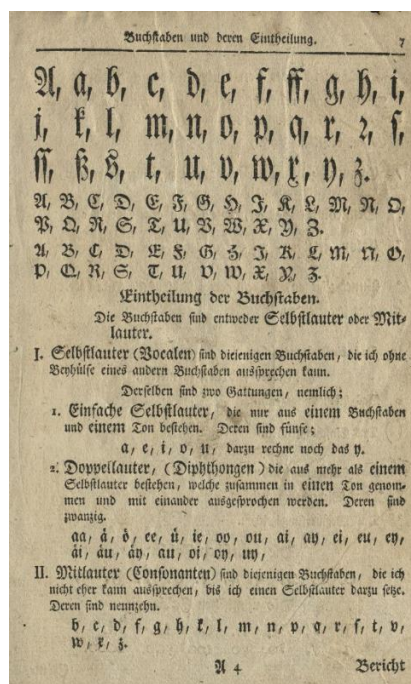 Buchstaben und deren Eintheilung. 7
A, a, b, c, d, e, f, ff, g, h, i,
j, k, l, m, n, o, p, q, r, ꝛ, ſ,
ſſ, ß, s, t, u, v, w, x, y, z.
A, B, C, D, E, F, G, H, J, K, L, M, N, O,
P, Q, R, S, T, U, V, W, X, Y, Z.
A, B, C, D, E, F, G, H, J, K, L, M, N, O,
P, Q, R, S, T, U, V, W, X, Y, Z.
Eintheilung der Buchſtaben.
Die Buchſtaben ſind entweder Selbſtlauter oder Mit-
lauter.
I. Selbſtlauter (Vocalen) ſind diejenigen Buchſtaben, die ich ohne
Beyhülfe eines andern Buchſtaben ausſprechen kann.
Derſelben ſind zwo Gattungen, nemlich;
1. Einfache Selbſtlauter, die nur aus einem Buchſtaben
und einem Ton beſtehen. Deren ſind fünfe;
a, e, i, o, u, darzu rechne noch das y.
2. Doppellauter, (Diphthongen) die aus mehr als einem
Selbſtlauter beſtehen, welche zuſammen in einen Ton genom-
men und mit einander ausgeſprochen werden. Deren ſind
zwanzig.
aa, aͤ, oͤ, ee, uͤ, ie, oo, ou, ai, ay, ei, eu, ey,
aͤi, aͤu, aͤy, au, oi, oy, uy,
II. Mitlauter (Conſonanten) ſind diejenigen Buchſtaben, die ich
nicht eher kann ausſprechen, bis ich einen Selbſtlauter darzu ſetze.
Deren ſind neunzehn.
b, c, d, f, g, h, k, l, m, n, p, q, r, ſ, t, v,
w, x, z.
A 4 Bericht